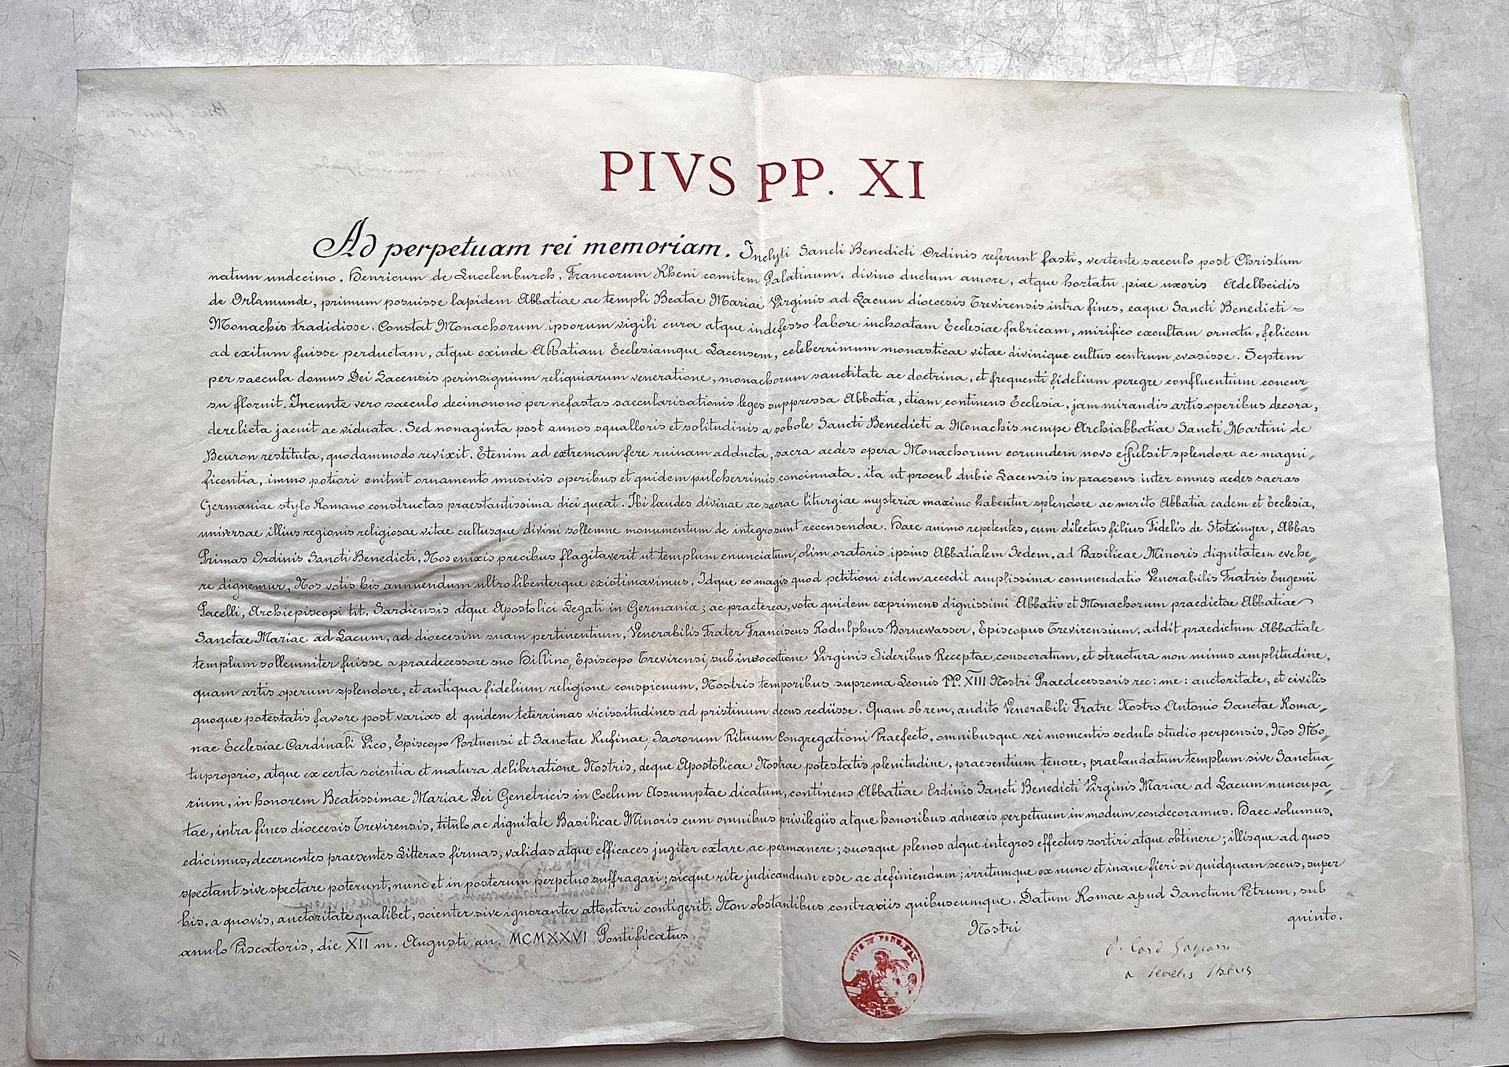 PIVS PP. XI
Ad perpetuam rei memoriam. Inclyti Sancti Benedicti Ordinis referunt fasti, vertente saeculo post Christum
natum undecimo, Henricum de Lucelenburch, Francorum Rheni comitem Palatinum, divino ductum amore, atque hortatu piae uxoris Adelheidis
de Orlamunde, primum posuisse lapidem Abbatiae ac templi Beatae Mariae Virginis ad Lacum dioecesis Trevirensis intra fines, eaque Sancti Benedicti =
Monachis tradidisse. Constat Monachorum ipsorum vigili cura atque indefesso labore inchoatam Ecclesiae fabricam, mirifico excultam ornatu, felicem
ad exitum fuisse perductam, atque exinde Abbatiam Ecclesiamque Lacensem, celeberrimum monasticae vitae divinique cultus centrum evasisse. Septem
per saecula domus Dei Lacensis perinsignium reliquiarum veneratione, monachorum sanctitate ac doctrina, et frequenti fidelium peregre confluentium concur=
su floruit. Incunte vero saeculo decimonono per nefastas saecularisationis leges suppressa Abbatia, etiam continens Ecclesia, jam mirandis artis operibus decora,
derelicta jacuit ac viduata. Sed nonaginta post annos squalloris et solitudinis a sobole Sancti Benedicti a Monachis nempe Archiabbatiae Sancti Martini de
Beuron restituta, quodammodo revixit. Etenim ad extremam fere ruinam adducta, sacra aedes opera Monachorum eorumdem novo effulsit splendore ac magni=
ficentia, immo potiori enituit ornamento musivis operibus et quidem pulcherrimis concinnata, ita ut procul dubio Lacensis in praesens inter omnes aedes sacras
Germaniae stylo Romano constructas praestantissima dici queat. Ibi laudes divinae ac sacrae liturgiae mysteria maximo habentur splendore ac merito Abbatia eadem et Ecclesia,
universae illius regionis religiosae vitae cultusque divini sollemne monumentum de integro sunt recensendae. Haec animo repetentes, cum dilectus filius Fidelis de Stotzinger, Abbas
Primas Ordinis Sancti Benedicti, Nos enixis precibus flagitaverit ut templum enunciatum, olim oratoris ipsius Abbatialem Sedem, ad Basilicae Minoris dignitatem evehe=
re dignemur, Nos votis his annuendum ultro libenterque existimavimus. Idque eo magis quod petitioni eidem accedit amplissima commendatio Venerabilis Fratris Eugenii
Pacelli, Archiepiscopi tit. Sardiensis atque Apostolici Legati in Germania; ac praeterea, vota quidem exprimens dignissimi Abbatis et Monachorum praedictae Abbatiae
Sanctae Mariae ad Lacum, ad dioecesim suam pertinentium, Venerabilis Frater Franciscus Rodulphus Bornewasser, Episcopus Trevirensium, addit praedictum Abbatiale
templum sollemniter fuisse a praedecessore suo Hillino, Episcopo Trevirensi, sub invocatione Virginis Sideribus Receptae, consecratum, et structura non minus amplitudine,
quam artis operum splendore, et antiqua fidelium religione conspicuum, Nostris temporibus suprema Leonis PP. XIII Nostri Praedecessoris rec: me: auctoritate, et civilis
quoque potestatis favore post varias et quidem teterrimas vicissitudines ad pristinum decus rediisse. Quam ob rem, audito Venerabili Fratre Nostro Antonio Sanctae Roma=
nae Ecclesiae Cardinali Vico, Episcopo Portuensi et Sanctae Rufinae, Sacrorum Rituum Congregationi Praefecto, omnibusque rei momentis sedulo studio perpensis, Nos Mo=
tuproprio, atque ex certa scientia et matura deliberatione Nostris, deque Apostolicae Nostrae potestatis plenitudine, praesentium tenore, praelaudatum templum sive Sanctua=
rium, in honorem Beatissimae Mariae Dei Genetricis in Coelum Assumptae dicatum, continens Abbatiae Ordinis Sancti Benedicti Virginis Mariae ad Lacum nuncupa=
tae, intra fines dioecesis Trevirensis, titulo ac dignitate Basilicae Minoris cum omnibus privilegiis atque honoribus adnexis perpetuum in modum condecoramus. Haec volumus,
edicimus, decernentes praesentes Litteras firmas, validas atque efficaces jugiter extare, ac permanere; suosque plenos atque integros effectus sortiri atque obtinere; illisque ad quos
spectant sive spectare poterunt, nunc et in posterum perpetuo suffragari; sicque rite judicandum esse ac definiendum; irritumque ex nunc et inane fieri si quidquam secus, super
his, a quovis, auctoritate qualibet, scienter sive ignoranter attentari contigerit. Non obstantibus contrariis quibuscumque. Datum Romae apud Sanctum Petrum, sub
anulo Piscatoris, die XII m. Augusti an. MCMXXVI Pontificatus Nostri quinto.
P. Card. Gasparri
a Secretis Status
PIVS XI PONT. MAX